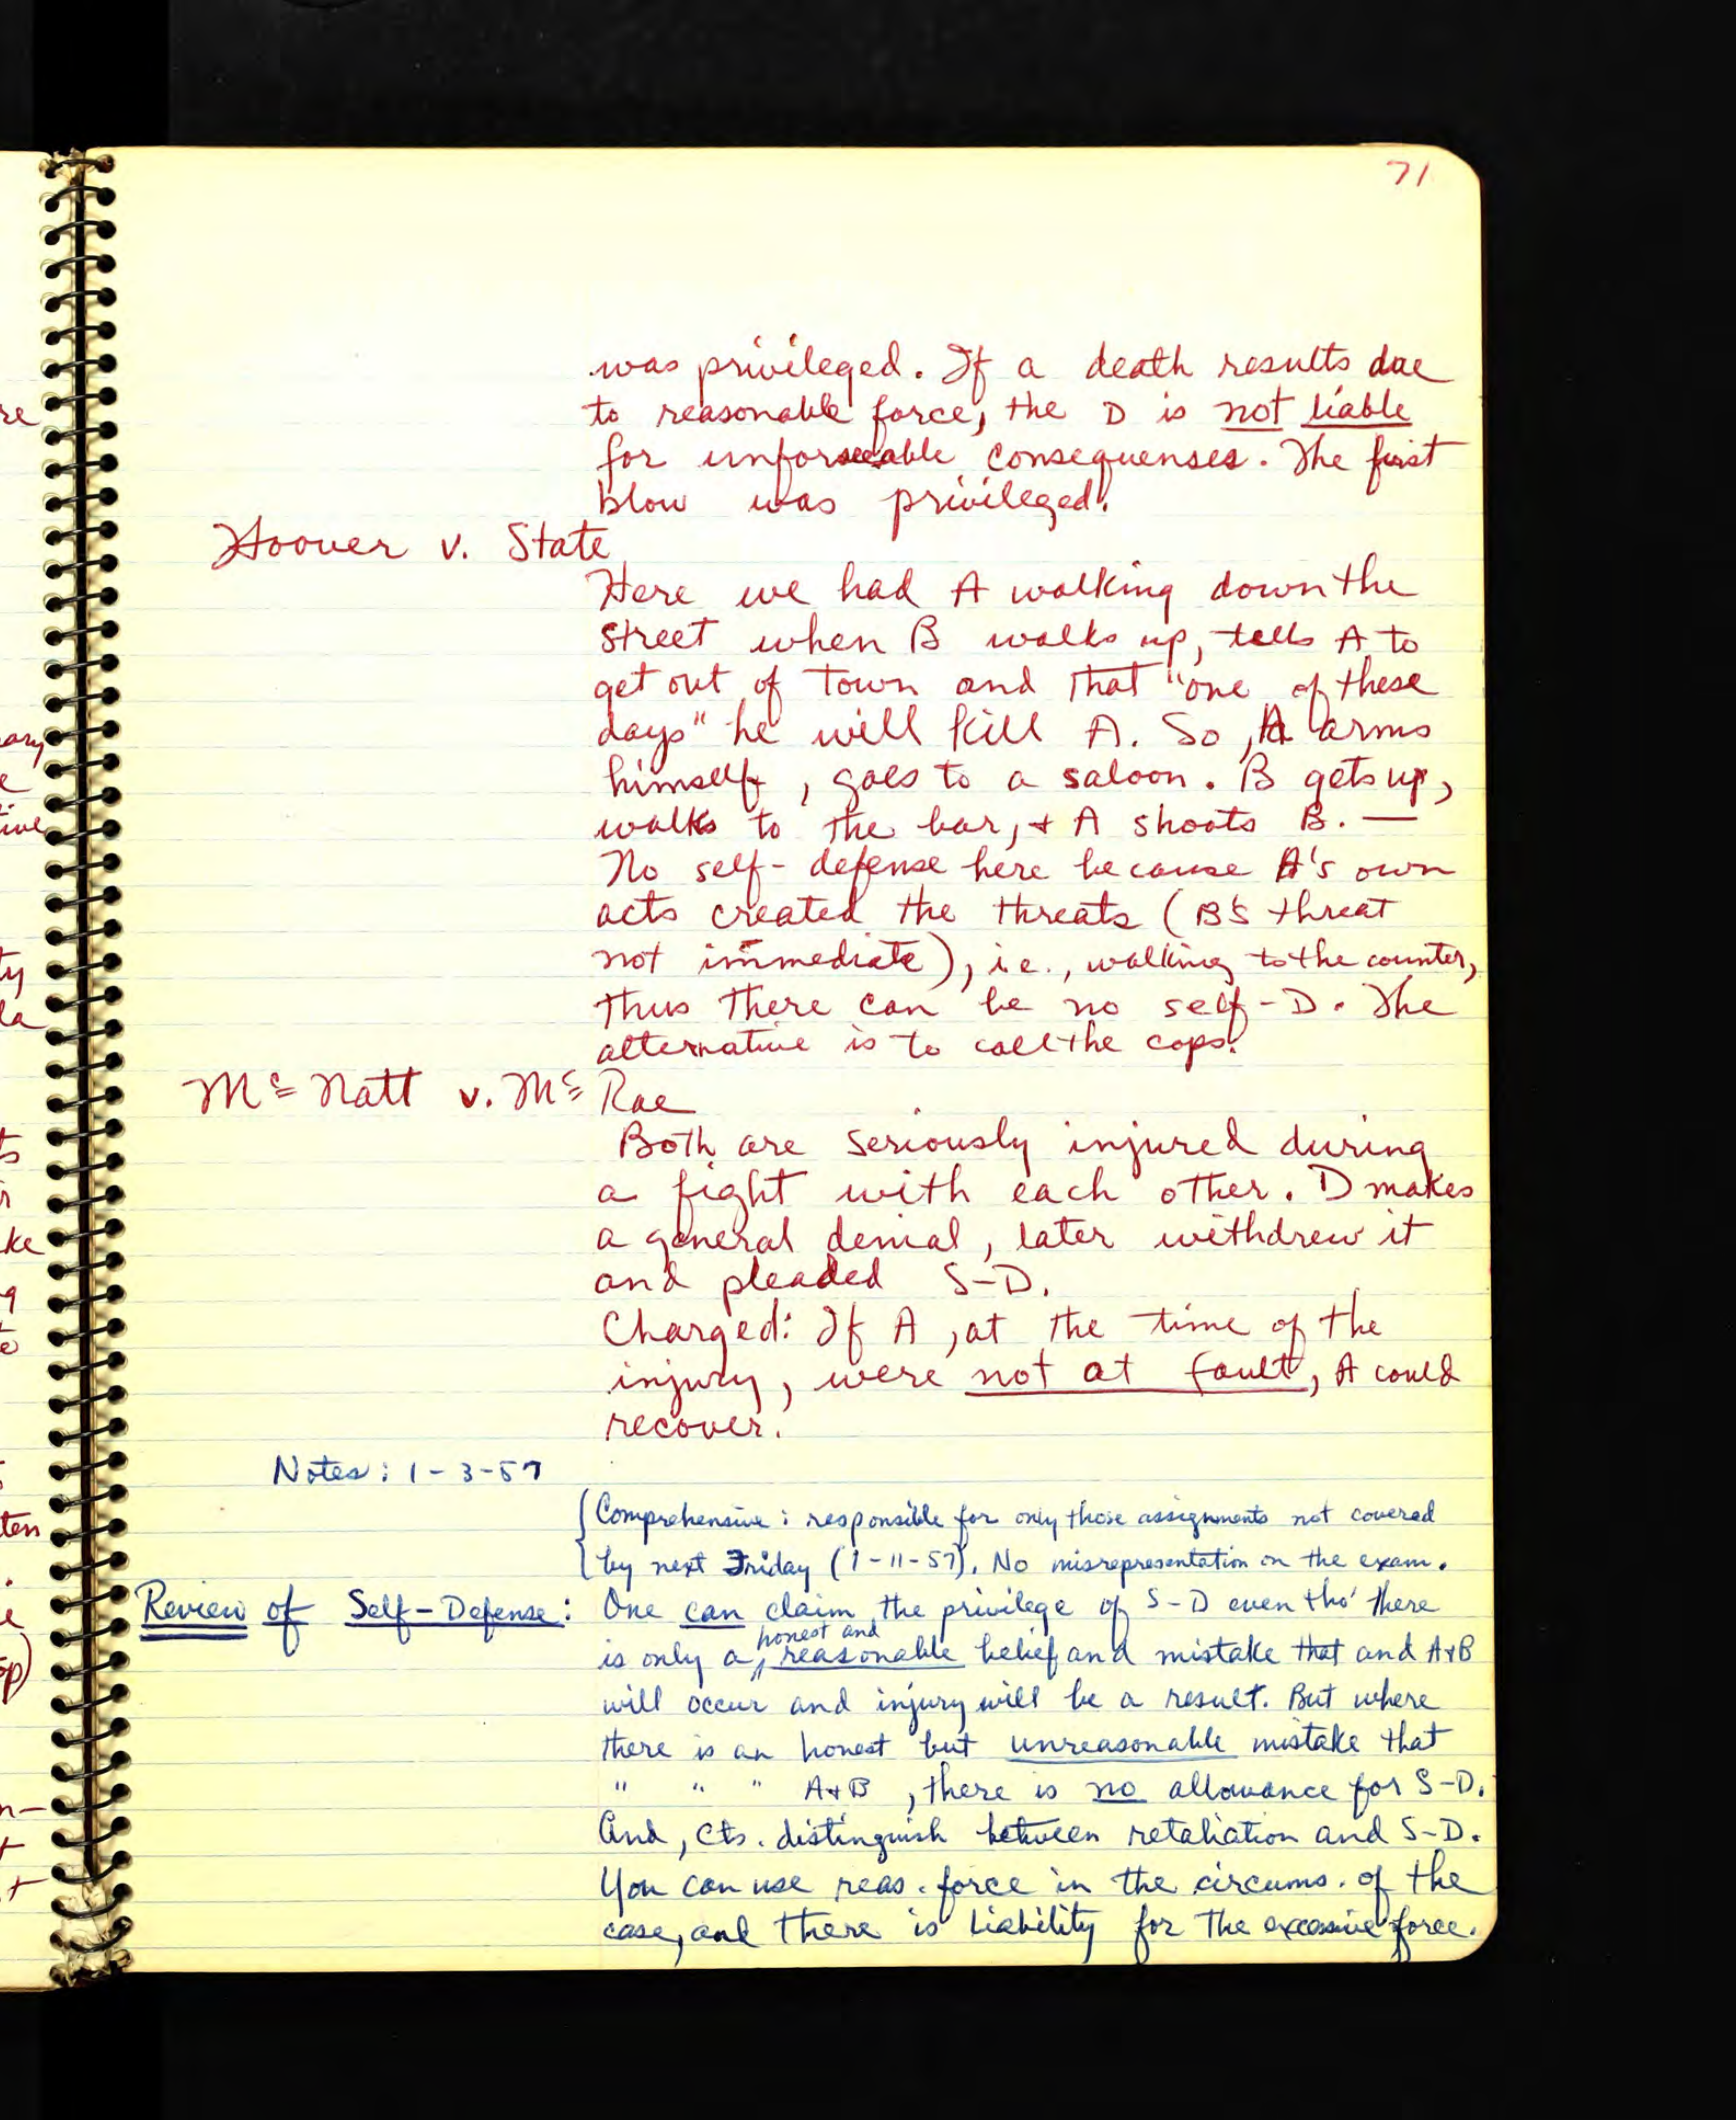 71
was privileged. If a death results due
to reasonable force, the D is not liable
for unforseeable consequenses. The first
blow was privileged.
Hoover v. State
Here we had A walking down the
street when B walks up, tells A to
get out of town and that "one of these
days" he will kill A. So, A arms
himself, goes to a saloon. B gets up,
walks to the bar, + A shoots B. —
No self-defense here because A's own
acts created the threats (B's threat
not immediate), i.e., walking to the counter,
thus there can be no self-D. The
alternative is to call the cops.
Mc Natt v. Mc Rae
Both are seriously injured during
a fight with each other. D makes
a general denial, later withdrew it
and pleaded S-D.
Charged: If A, at the time of the
injury, were not at fault, A could
recover.
Notes: 1-3-57
Comprehensive: responsible for only those assignments not covered
by next Friday (1-11-57). No misrepresentation on the exam.
Review of Self-Defense: One can claim the privilege of S-D even tho' there
is only a honest and reasonable belief and mistake that and A+B
will occur and injury will be a result. But where
there is an honest but unreasonable mistake that
" " " A+B, there is no allowance for S-D.
And, cts. distinguish between retaliation and S-D.
You can use reas. force in the circums. of the
case, and there is liability for the excessive force.
re
ary
e
tive
ty
la
ts
r
ke
g
te
ten
e
op)
n-
t
+